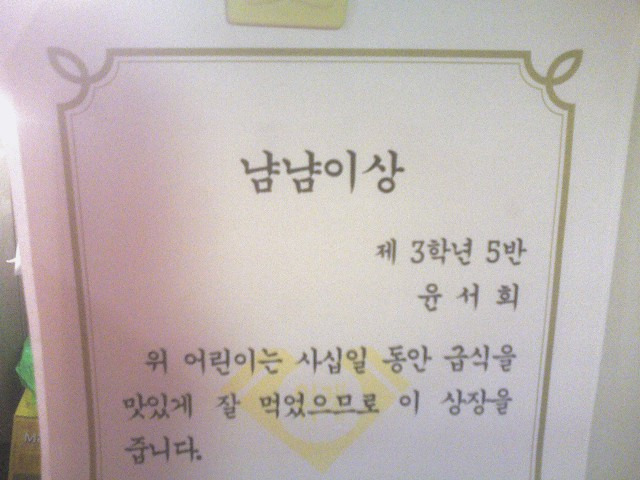 냠냠이상
제 3학년 5반
윤 서 희
위 어린이는 사십일 동안 급식을
맛있게 잘 먹었으므로 이 상장을
줍니다.